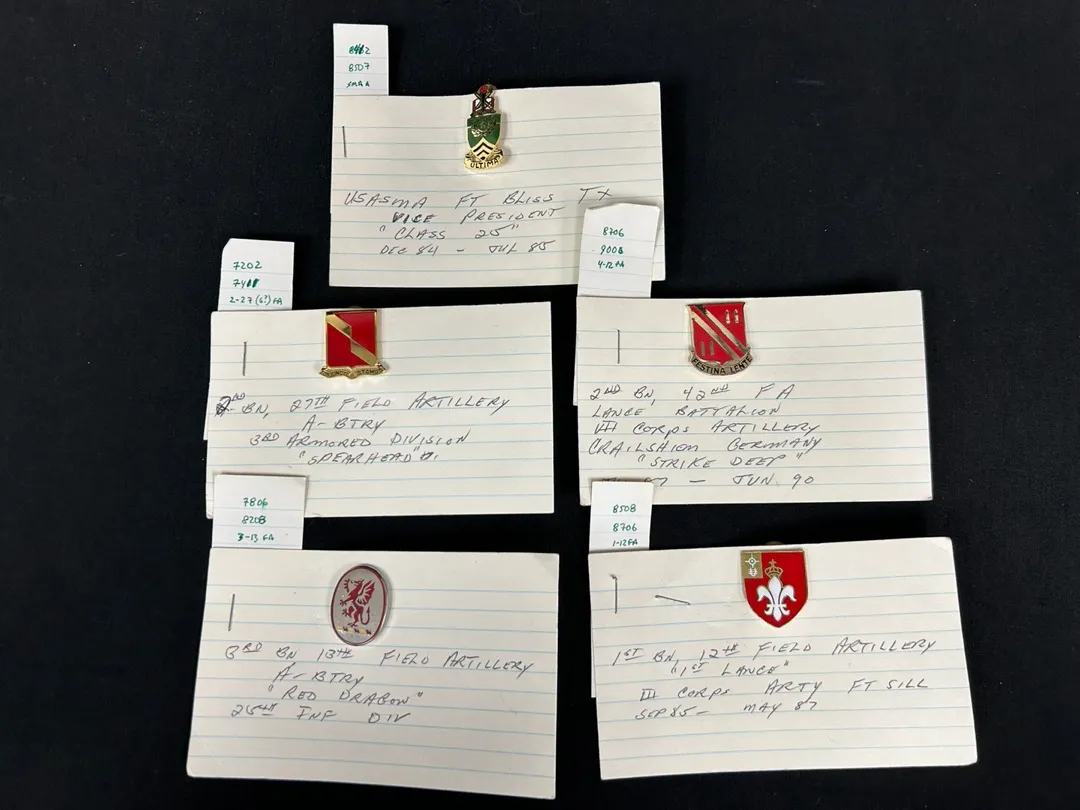 8412
8507
SMA A
ULTIMA
USASMA FT BLISS TX
VICE PRESIDENT
"CLASS 25"
DEC 84 - JUL 85
7202
7411
2-27 (63) FA
2ND BN, 27TH FIELD ARTILLERY
A-BTRY
3RD ARMORED DIVISION
"SPEARHEAD"
8706
9006
4-12 FA
FESTINA LENTE
2ND BN, 42ND FA
LANCE BATTALION
VII CORPS ARTILLERY
CRAILSHION GERMANY
"STRIKE DEEP"
87 - JUN 90
7806
8208
3-13 FA
3RD BN 13TH FIELD ARTILLERY
A-BTRY
"RED DRAGON"
25TH INF DIV
8508
8706
1-12 FA
1ST BN, 12TH FIELD ARTILLERY
"1ST LANCE"
III CORPS ARTY FT SILL
SEP 85 - MAY 87